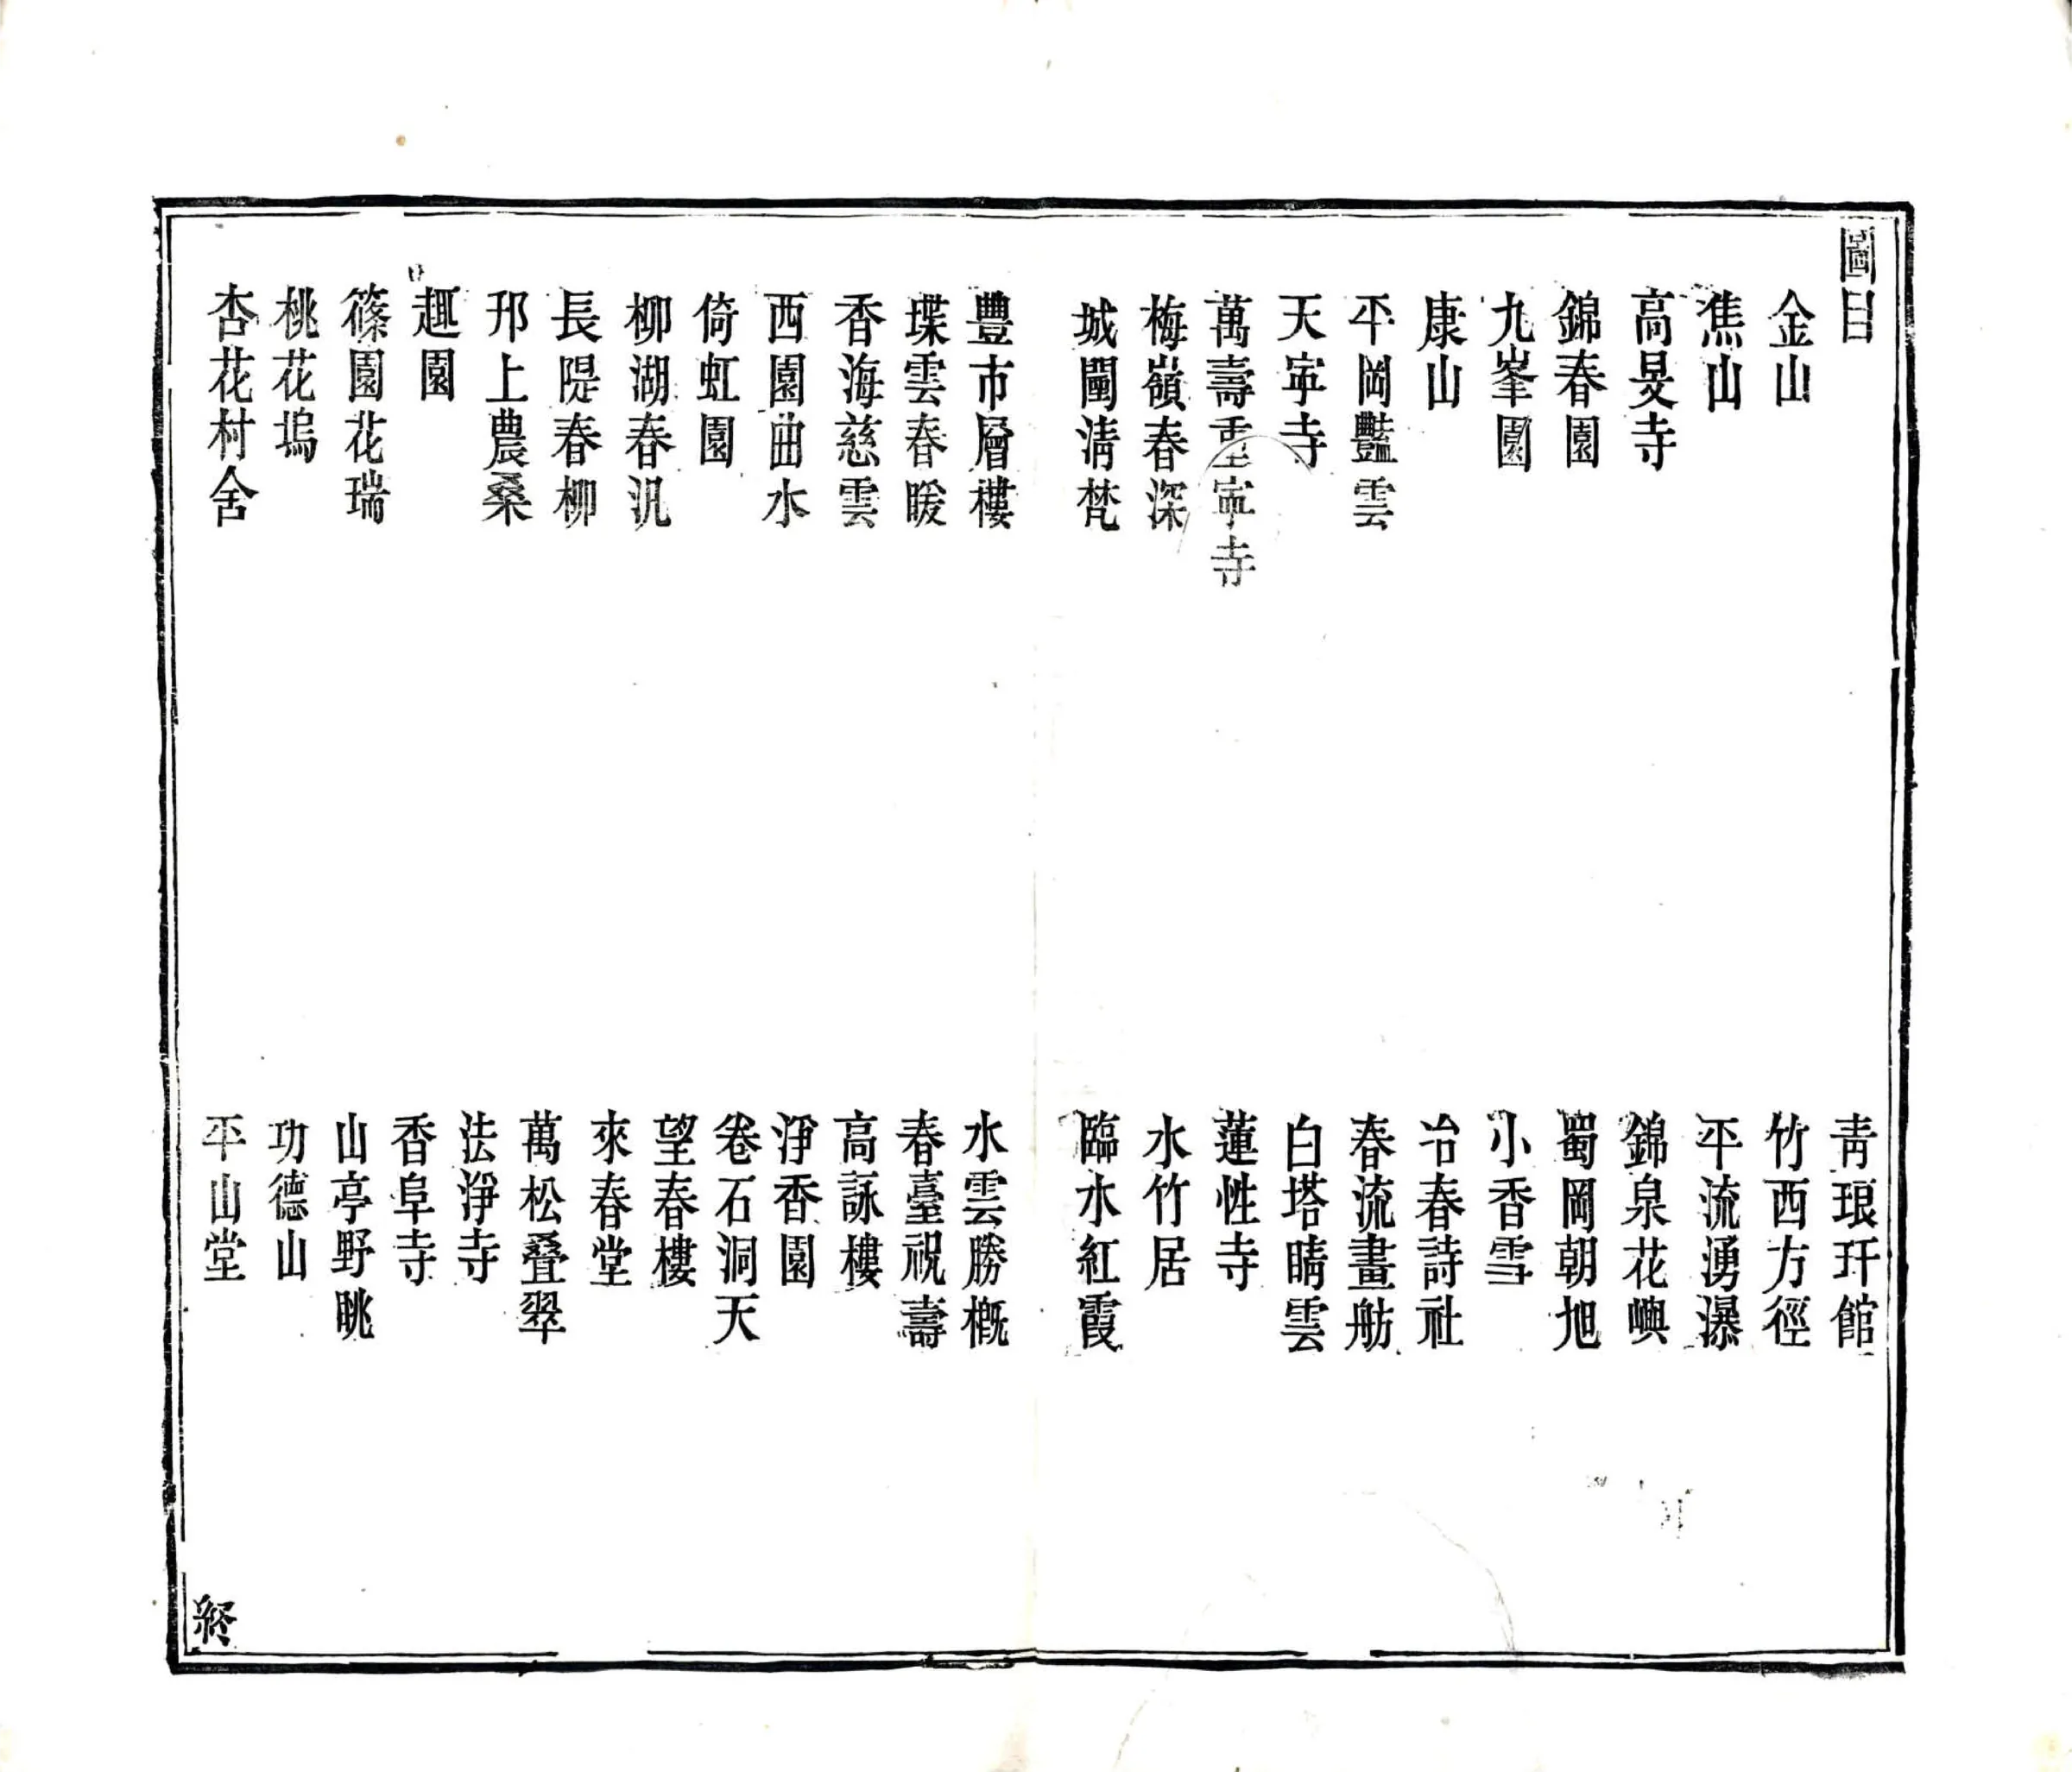 圖目
金山
焦山
高旻寺
錦春園
九峯園
康山
平岡豔雲
天寕寺
萬壽重寕寺
梅嶺春深
城闉清梵
豐市層樓
堞雲春暖
香海慈雲
西園曲水
倚虹園
柳湖春汎
長隄春柳
邗上農桑
趣園
篠園花瑞
桃花塢
杏花村舍
青琅玕館
竹西方徑
平流湧瀑
錦泉花嶼
蜀岡朝旭
小香雪
冶春詩社
春流畫舫
白塔晴雲
蓮性寺
水竹居
臨水紅霞
水雲勝概
春臺祝壽
高詠樓
淨香園
卷石洞天
望春樓
來春堂
萬松叠翠
法淨寺
香阜寺
山亭野眺
功德山
平山堂
終